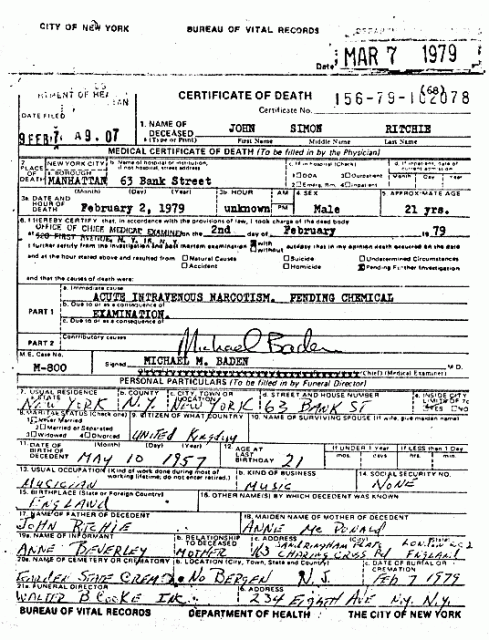 CITY OF NEW YORK
BUREAU OF VITAL RECORDS
Date: MAR 7 1979
CERTIFICATE OF DEATH
Certificate No. 156-79-102078
(68)
DATE FILED
9 FEB 7 A9.07
1. NAME OF DECEASED (Type or Print)
JOHN SIMON RITCHIE
First Name Middle Name Last Name
MEDICAL CERTIFICATE OF DEATH (To be filled in by the Physician)
2. PLACE OF DEATH
NEW YORK CITY
a. BOROUGH
MANHATTAN
b. Name of hospital or institution, if not hospital, street address
63 Bank Street
3a DATE AND HOUR OF DEATH
(Month) (Day) (Year)
February 2, 1979
3b HOUR
unknown
AM
PM
4. SEX
Male
5. APPROXIMATE AGE
21 yrs.
6. I HEREBY CERTIFY that, in accordance with the provisions of law, I took charge of the dead body
OFFICE OF CHIEF MEDICAL EXAMINER
at 520 FIRST AVENUE, N. Y. 16, N. Y.
2nd day of February 19 79
I further certify from the investigation and post mortem examination with without autopsy that in my opinion death occurred on the date
and at the hour stated above and resulted from
Natural Causes
Accident
Suicide
Homicide
Undetermined Circumstances
Pending Further Investigation
and that the causes of death were:
PART 1
a. Immediate cause
ACUTE INTRAVENOUS NARCOTISM. PENDING CHEMICAL
b. Due to or as a consequence of
EXAMINATION.
c. Due to or as a consequence of
PART 2
Contributory causes
Michael Baden
M.E. Case No.
M-800
Signed MICHAEL M. BADEN M.D.
(Chief) (Medical Examiner)
PERSONAL PARTICULARS (To be filled in by Funeral Director)
7. USUAL RESIDENCE
a. STATE
NEW YORK
b. COUNTY
N.Y.
c. CITY, TOWN OR LOCATION
NEW YORK
d. STREET AND HOUSE NUMBER
63 BANK ST
e. INSIDE CITY LIMITS
YES NO
8. MARITAL STATUS (Check one)
1 Never Married
2 Married or Separated
3 Widowed 4 Divorced
9. CITIZEN OF WHAT COUNTRY
UNITED KINGDOM
10. NAME OF SURVIVING SPOUSE (If wife, give maiden name)
11. DATE OF BIRTH OF DECEDENT
(Month) (Day) (Year)
MAY 10 1957
12. AGE AT LAST BIRTHDAY
21
If UNDER 1 Year
mos. days
If LESS than 1 Day
hrs. min
13. USUAL OCCUPATION (Kind of work done during most of working lifetime; do not enter retired.)
MUSICIAN
b. KIND OF BUSINESS
MUSIC
14. SOCIAL SECURITY NO.
NONE
15. BIRTHPLACE (State or Foreign Country)
ENGLAND
16. OTHER NAME(S) BY WHICH DECEDENT WAS KNOWN
17. NAME OF FATHER OF DECEDENT
JOHN RITCHIE
18. MAIDEN NAME OF MOTHER OF DECEDENT
ANNE McDONALD
19a. NAME OF INFORMANT
ANNE BEVERLEY
b. RELATIONSHIP TO DECEASED
MOTHER
c. ADDRESS (City) (State)
SANDRINGHAM FLATS LONDON WC2
CHARING CROSS RD ENGLAND
20a. NAME OF CEMETERY OR CREMATORY
GARDEN STATE CREM.
b. LOCATION (City, Town, State and Country)
NO BERGEN N.J.
c. DATE OF BURIAL OR CREMATION
FEB 7 1979
21a. FUNERAL DIRECTOR
WALTER B COOKE INC.
b. ADDRESS
234 EIGHTH AVE N.Y. N.Y.
BUREAU OF VITAL RECORDS
DEPARTMENT OF HEALTH
THE CITY OF NEW YORK